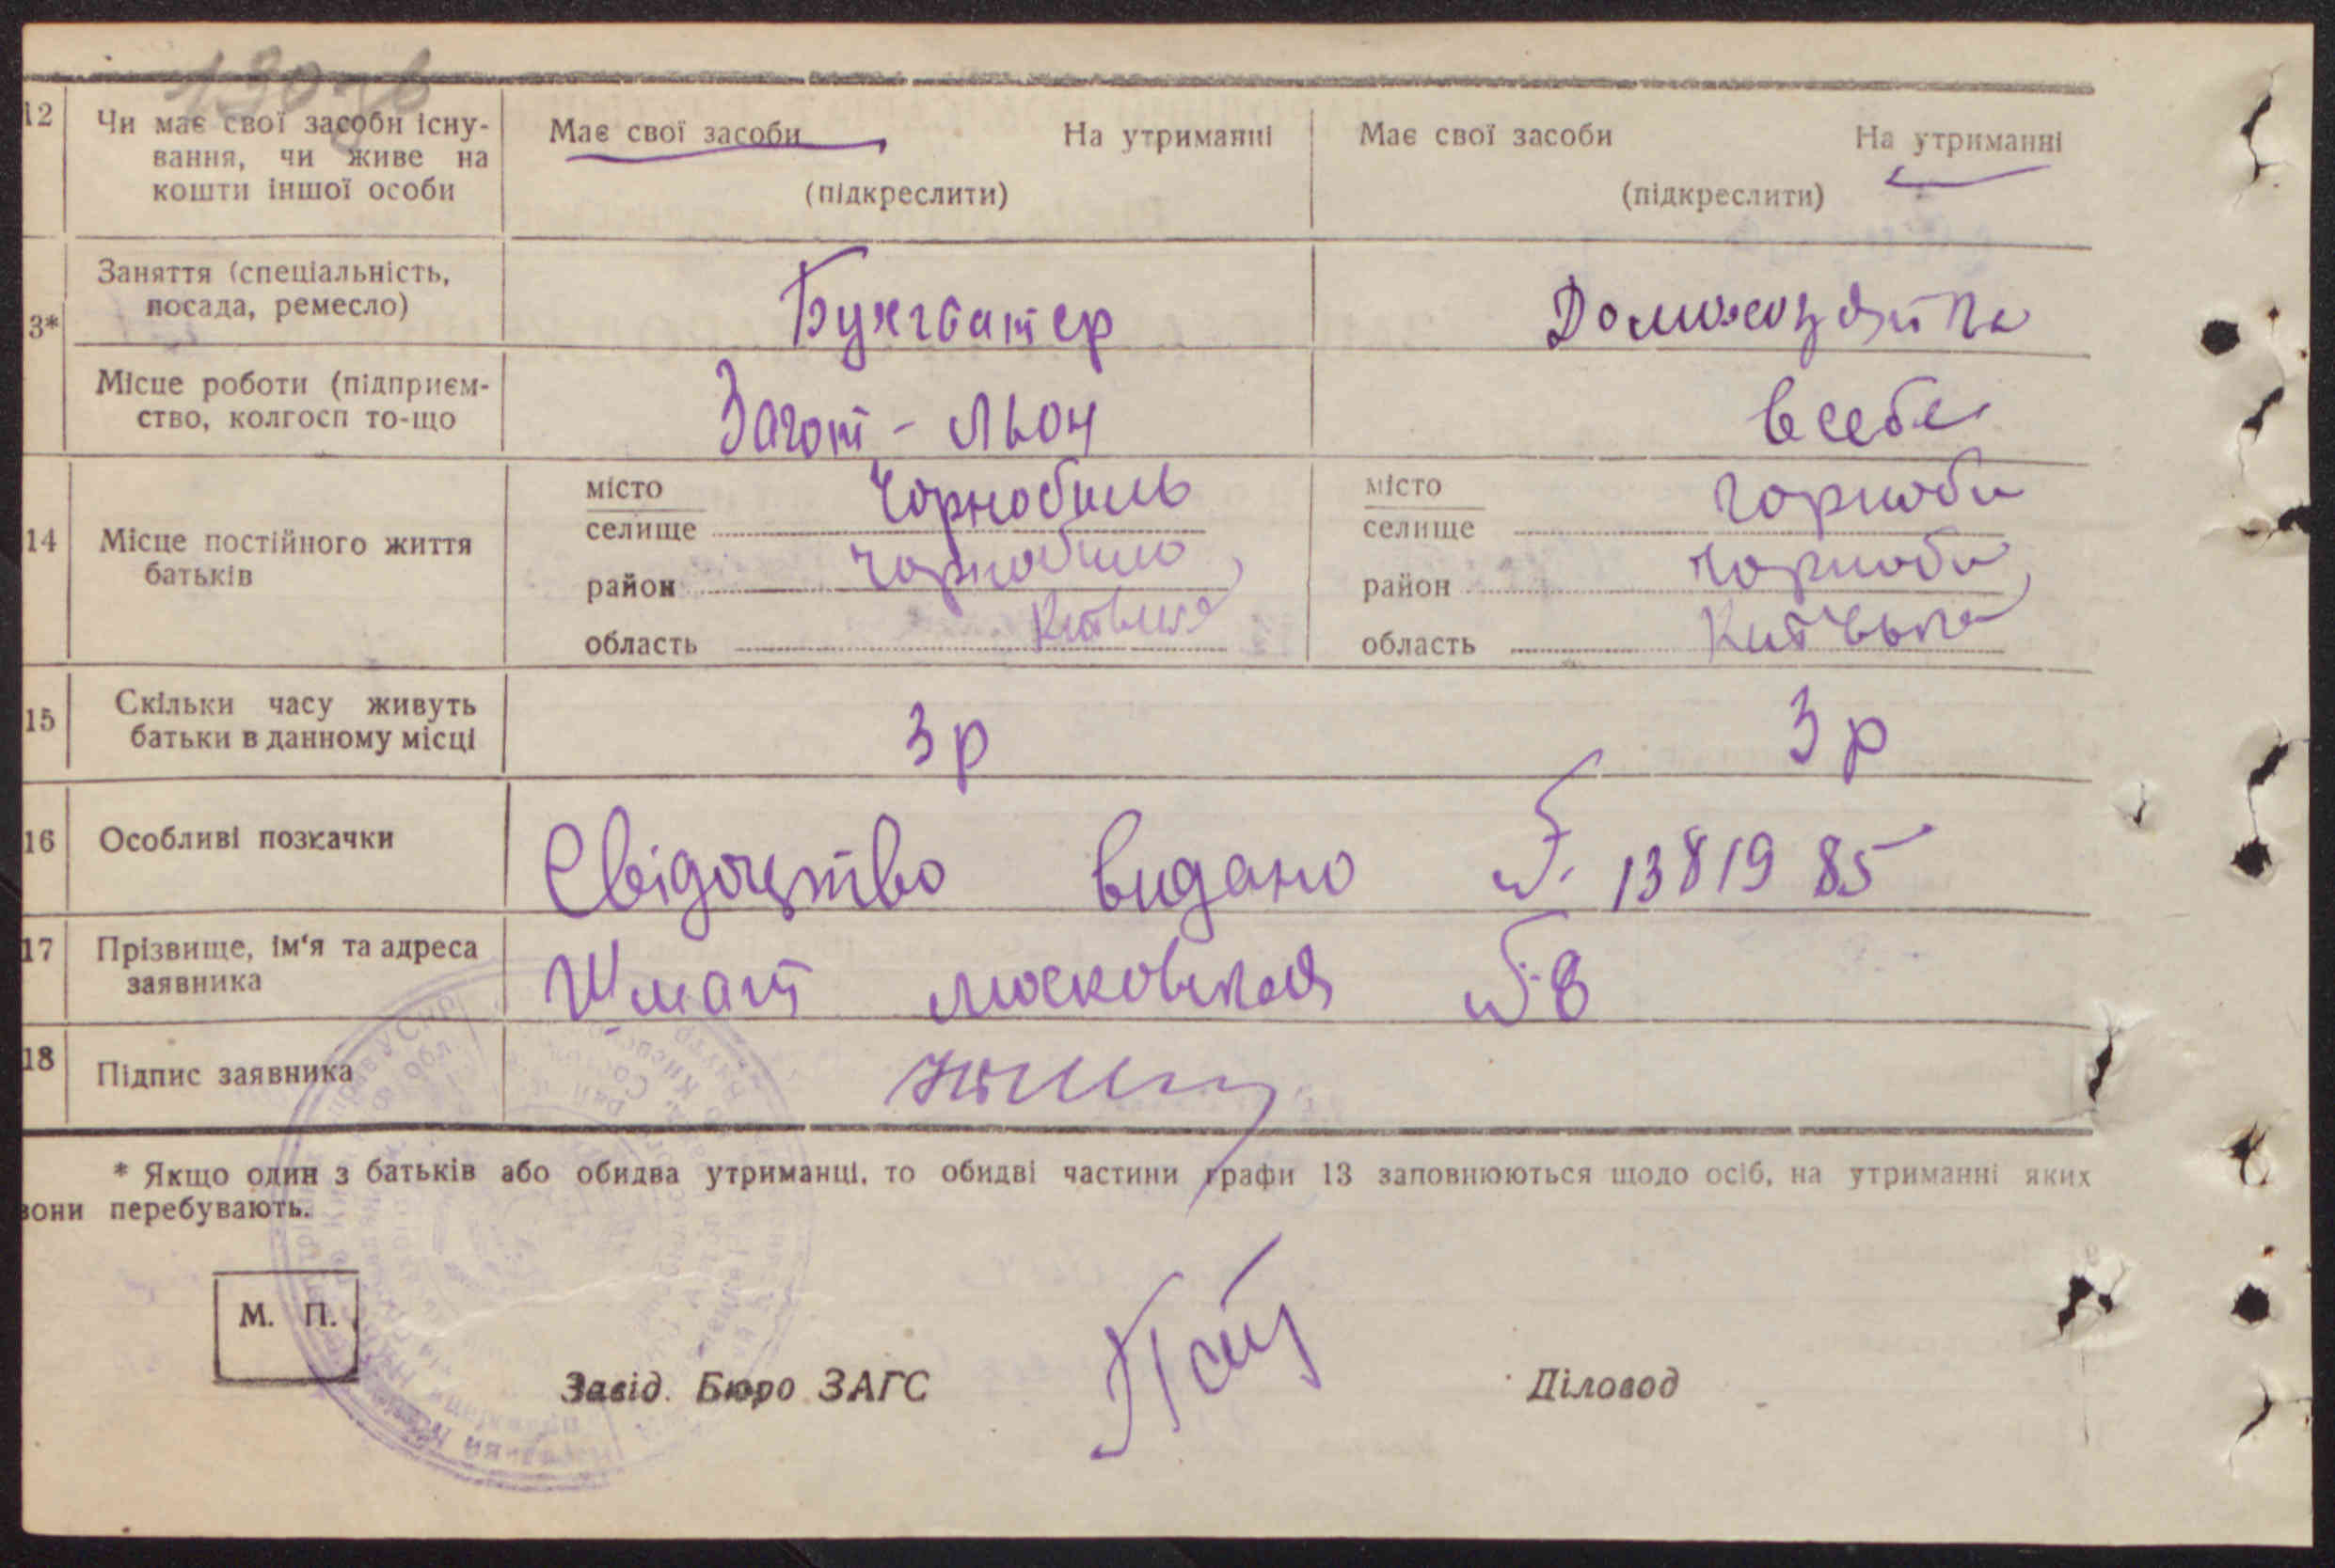 190зв
12 Чи має свої засоби існу- Має свої засоби На утриманні Має свої засоби На утриманні
вання, чи живе на
кошти іншої особи (підкреслити) (підкреслити)
3* Заняття (спеціальність, Бухгалтер Домохозяйка
посада, ремесло)
Місце роботи (підприєм- Загот - льон в себе
ство, колгосп то-що
14 Місце постійного життя місто Чорнобиль місто Чорноби
батьків селище селище
район Чорнобиль район Чорноби
область Київська область Київська
15 Скільки часу живуть 3 р 3 р
батьки в данному місці
16 Особливі позначки Свідоцтво видано № 13819 85
17 Прізвище, ім‘я та адреса московская № 8
заявника
18 Підпис заявника
* Якщо один з батьків або обидва утриманці, то обидві частини графи 13 заповнюються щодо осіб, на утриманні яких
вони перебувають.
М. П.
Завід. Бюро ЗАГС Діловод